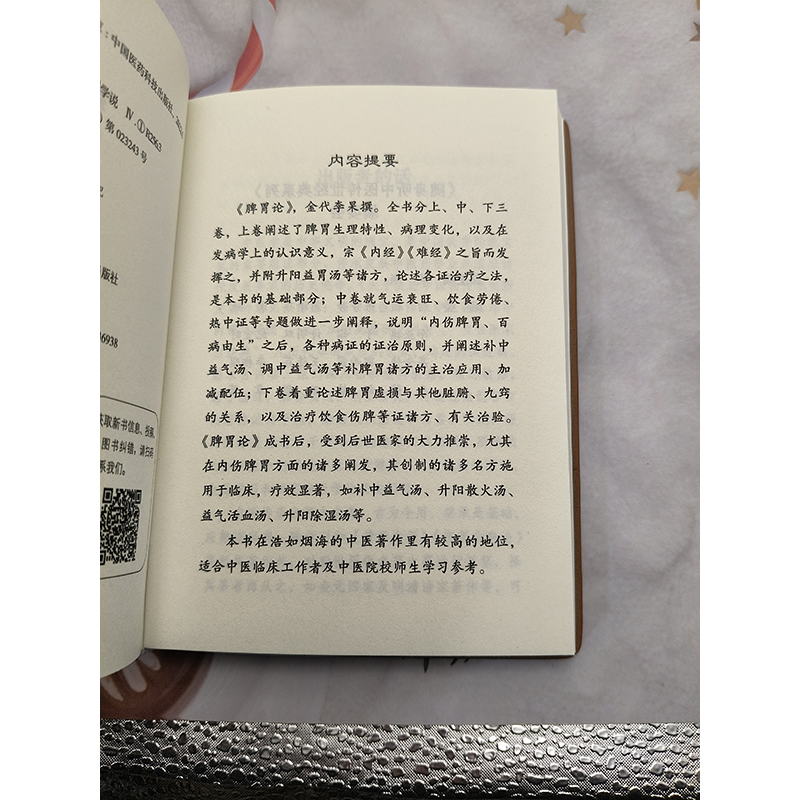 ：中国医药科技出版社，
学说 Ⅳ.①R2563
第 023243 号
版社
6938
获取新书信息、投稿、
图书纠错，请扫码
系我们。
内容提要
《脾胃论》，金代李杲撰。全书分上、中、下三
卷，上卷阐述了脾胃生理特性、病理变化，以及在
发病学上的认识意义，宗《内经》《难经》之旨而发
挥之，并附升阳益胃汤等诸方，论述各证治疗之法，
是本书的基础部分；中卷就气运衰旺、饮食劳倦、
热中证等专题做进一步阐释，说明“内伤脾胃、百
病由生”之后，各种病证的证治原则，并阐述补中
益气汤、调中益气汤等补脾胃诸方的主治应用、加
减配伍；下卷着重论述脾胃虚损与其他脏腑、九窍
的关系，以及治疗饮食伤脾等证诸方、有关治验。
《脾胃论》成书后，受到后世医家的大力推崇，尤其
在内伤脾胃方面的诸多阐发，其创制的诸多名方施
用于临床，疗效显著，如补中益气汤、升阳散火汤、
益气活血汤、升阳除湿汤等。
本书在浩如烟海的中医著作里有较高的地位，
适合中医临床工作者及中医院校师生学习参考。